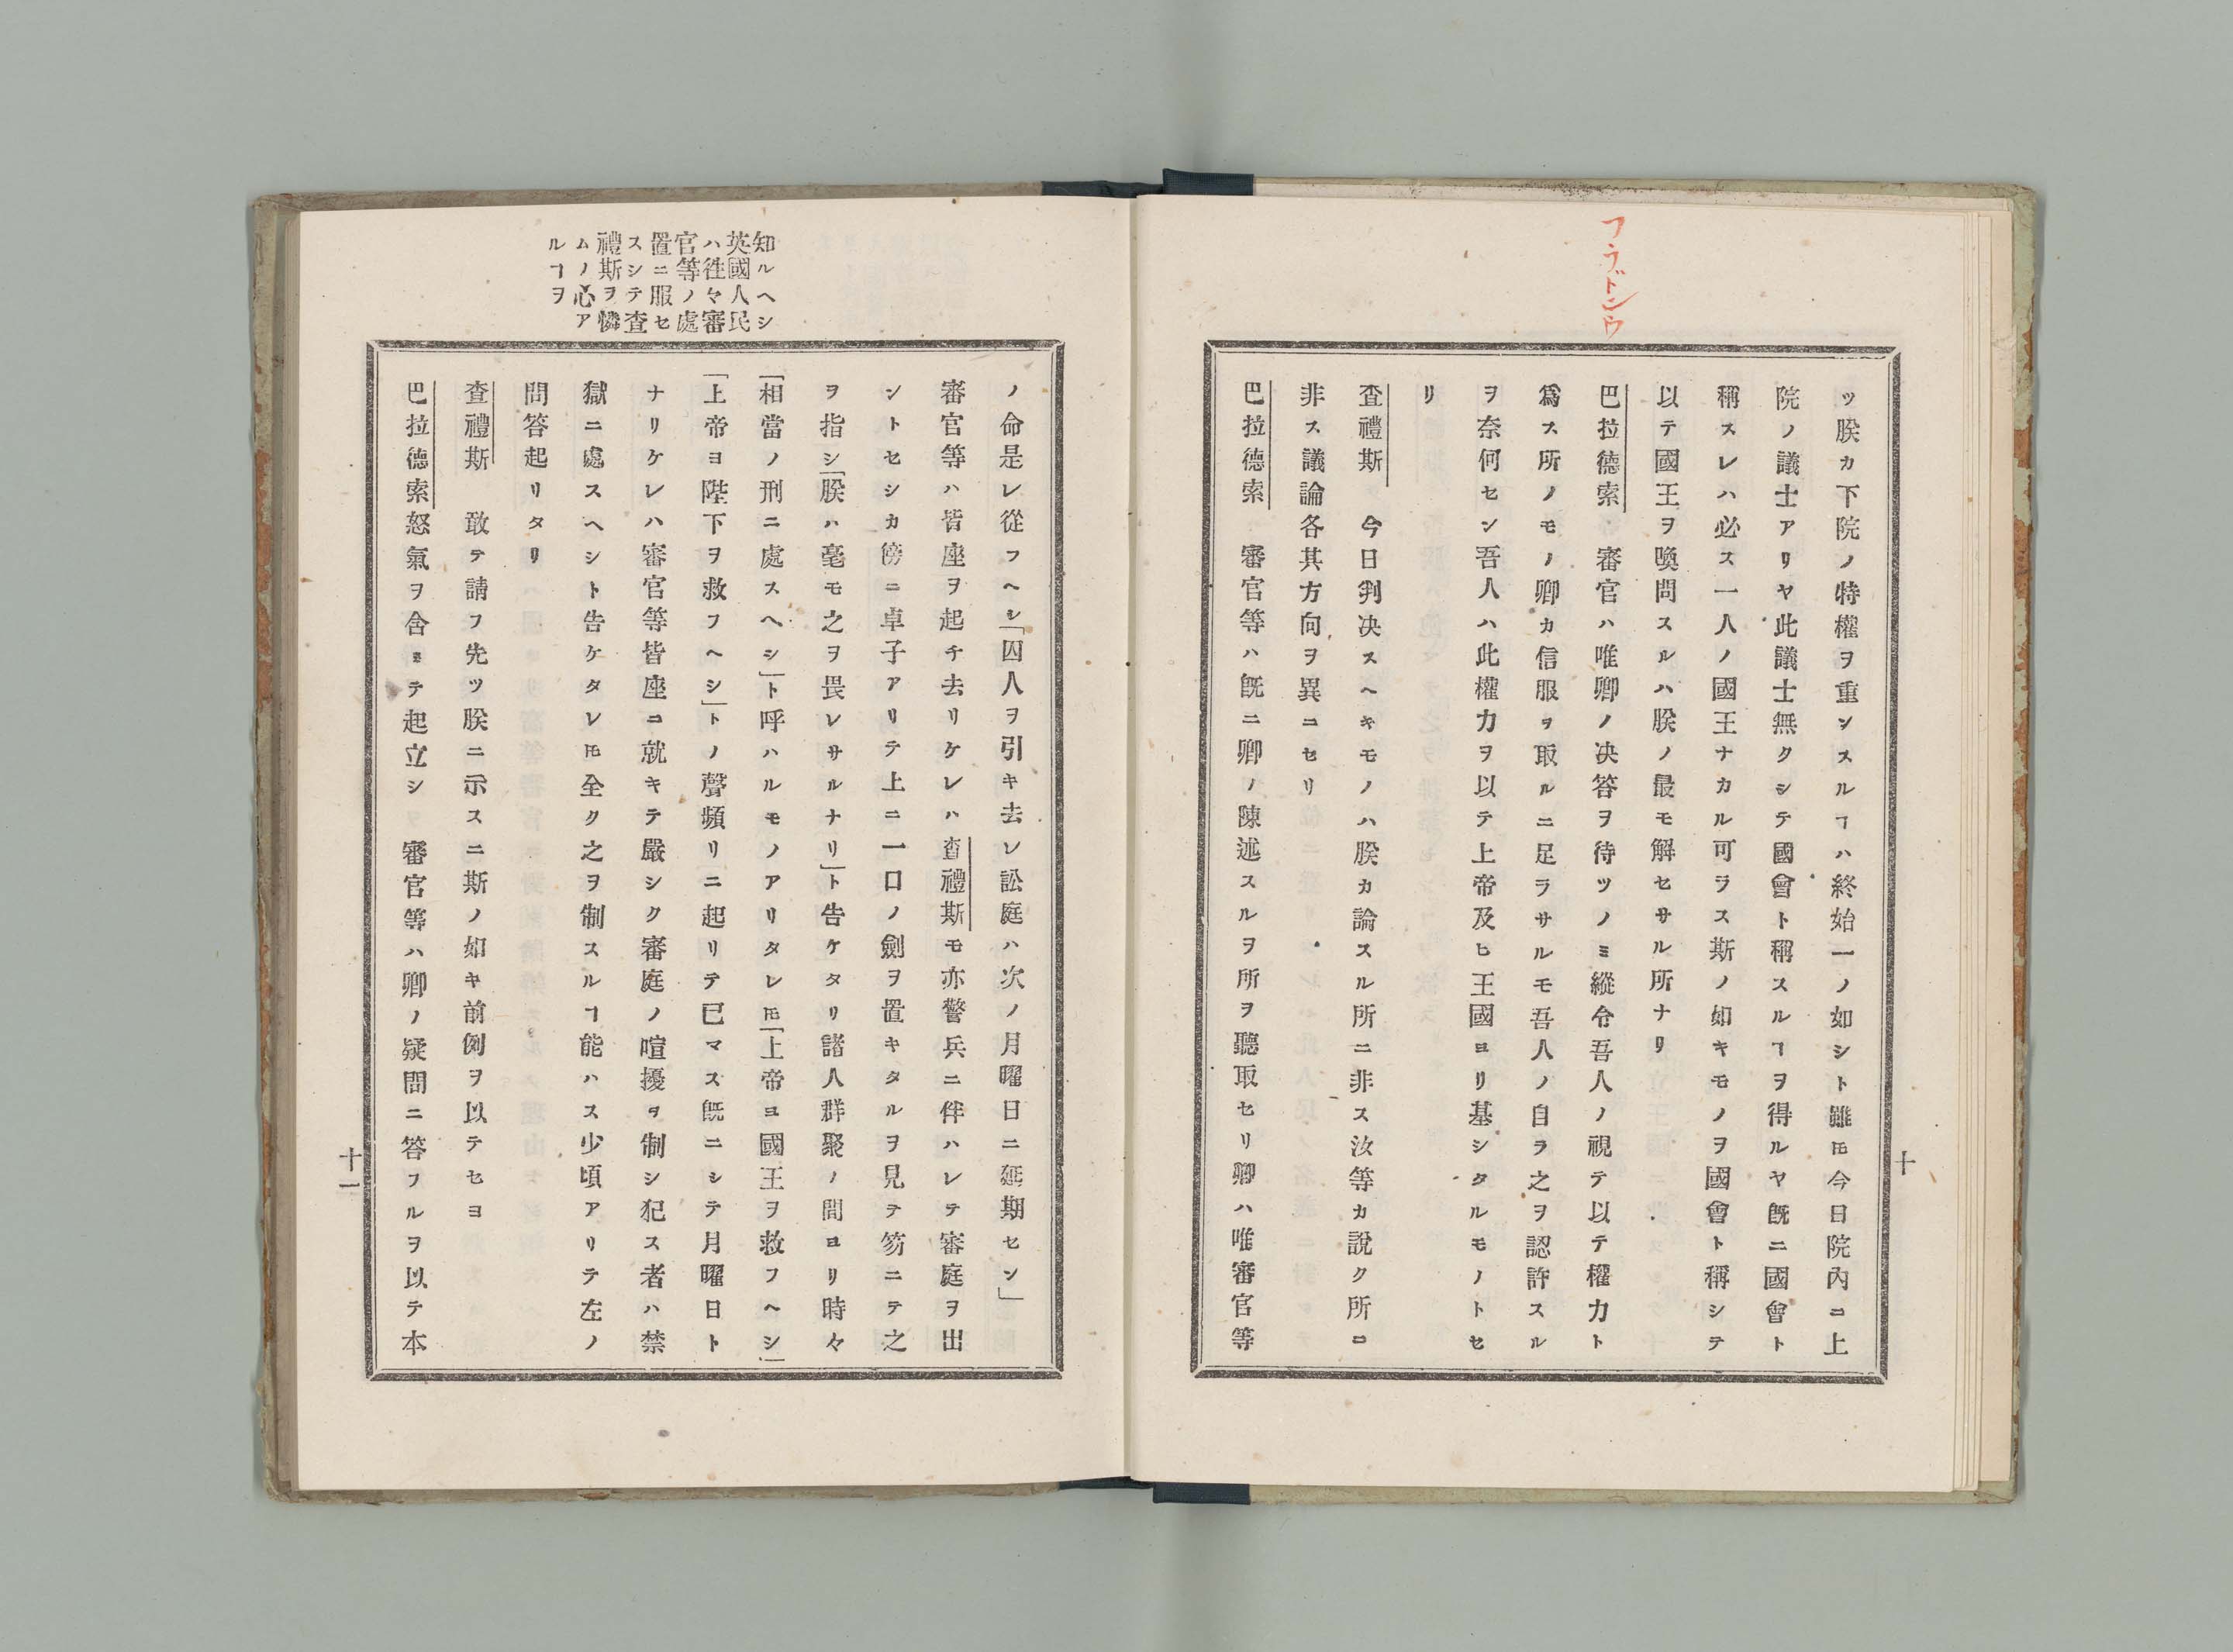 フラドンウ
ッ朕カ下院ノ特權ヲ重ンスルヿハ終始一ノ如シト雖𪜈今日院內ニ上
院ノ議士アリヤ此議士無クシテ國會ト稱スルヿヲ得ルヤ既ニ國會ト
稱スレハ必ス一人ノ國王ナカル可ラス斯ノ如キモノヲ國會ト稱シテ
以テ國王ヲ喚問スルハ朕ノ最モ解セサル所ナリ
巴拉德索　審官ハ唯卿ノ决答ヲ待ツノミ縱令吾人ノ視テ以テ權力ト
爲ス所ノモノ卿カ信服ヲ取ルニ足ラサルモ吾人ノ自ラ之ヲ認許スル
ヲ奈何セン吾人ハ此權力ヲ以テ上帝及ヒ王國ヨリ基シタルモノトセ
リ
査禮斯　今日判决スヘキモノハ朕カ論スル所ニ非ス汝等カ說ク所ニ
非ス議論各其方向ヲ異ニセリ
巴拉德索　審官等ハ既ニ卿ノ陳述スルヲ所ヲ聽取セリ卿ハ唯審官等
十
知ルヘシ
英國人民
ハ徃々審
官等ノ處
置ニ服セ
スシテ査
禮斯ヲ憐
ムノ心ア
ルヿヲ
ノ命是レ從フヘシ「囚人ヲ引キ去レ訟庭ハ次ノ月曜日ニ延期セン」
審官等ハ皆座ヲ起チ去リケレハ査禮斯モ亦警兵ニ伴ハレテ審庭ヲ出
ントセシカ傍ニ卓子アリテ上ニ一口ノ劍ヲ置キタルヲ見テ笏ニテ之
ヲ指シ「朕ハ毫モ之ヲ畏レサルナリ」ト告ケタリ諸人群聚ノ間ヨリ時々
「相當ノ刑ニ處スヘシ」ト呼ハルモノアリタレ𪜈「上帝ヨ國王ヲ救フヘシ」
「上帝ヨ陛下ヲ救フヘシ」トノ聲頻リニ起リテ已マス既ニシテ月曜日ト
ナリケレハ審官等皆座ニ就キテ嚴シク審庭ノ喧擾ヲ制シ犯ス者ハ禁
獄ニ處スヘシト告ケタレ𪜈全ク之ヲ制スルヿ能ハス少頃アリテ左ノ
問答起リタリ
査禮斯　敢テ請フ先ツ朕ニ示スニ斯ノ如キ前例ヲ以テセヨ
巴拉德索怒氣ヲ含ミテ起立シ　審官等ハ卿ノ疑問ニ答フルヲ以テ本
十一